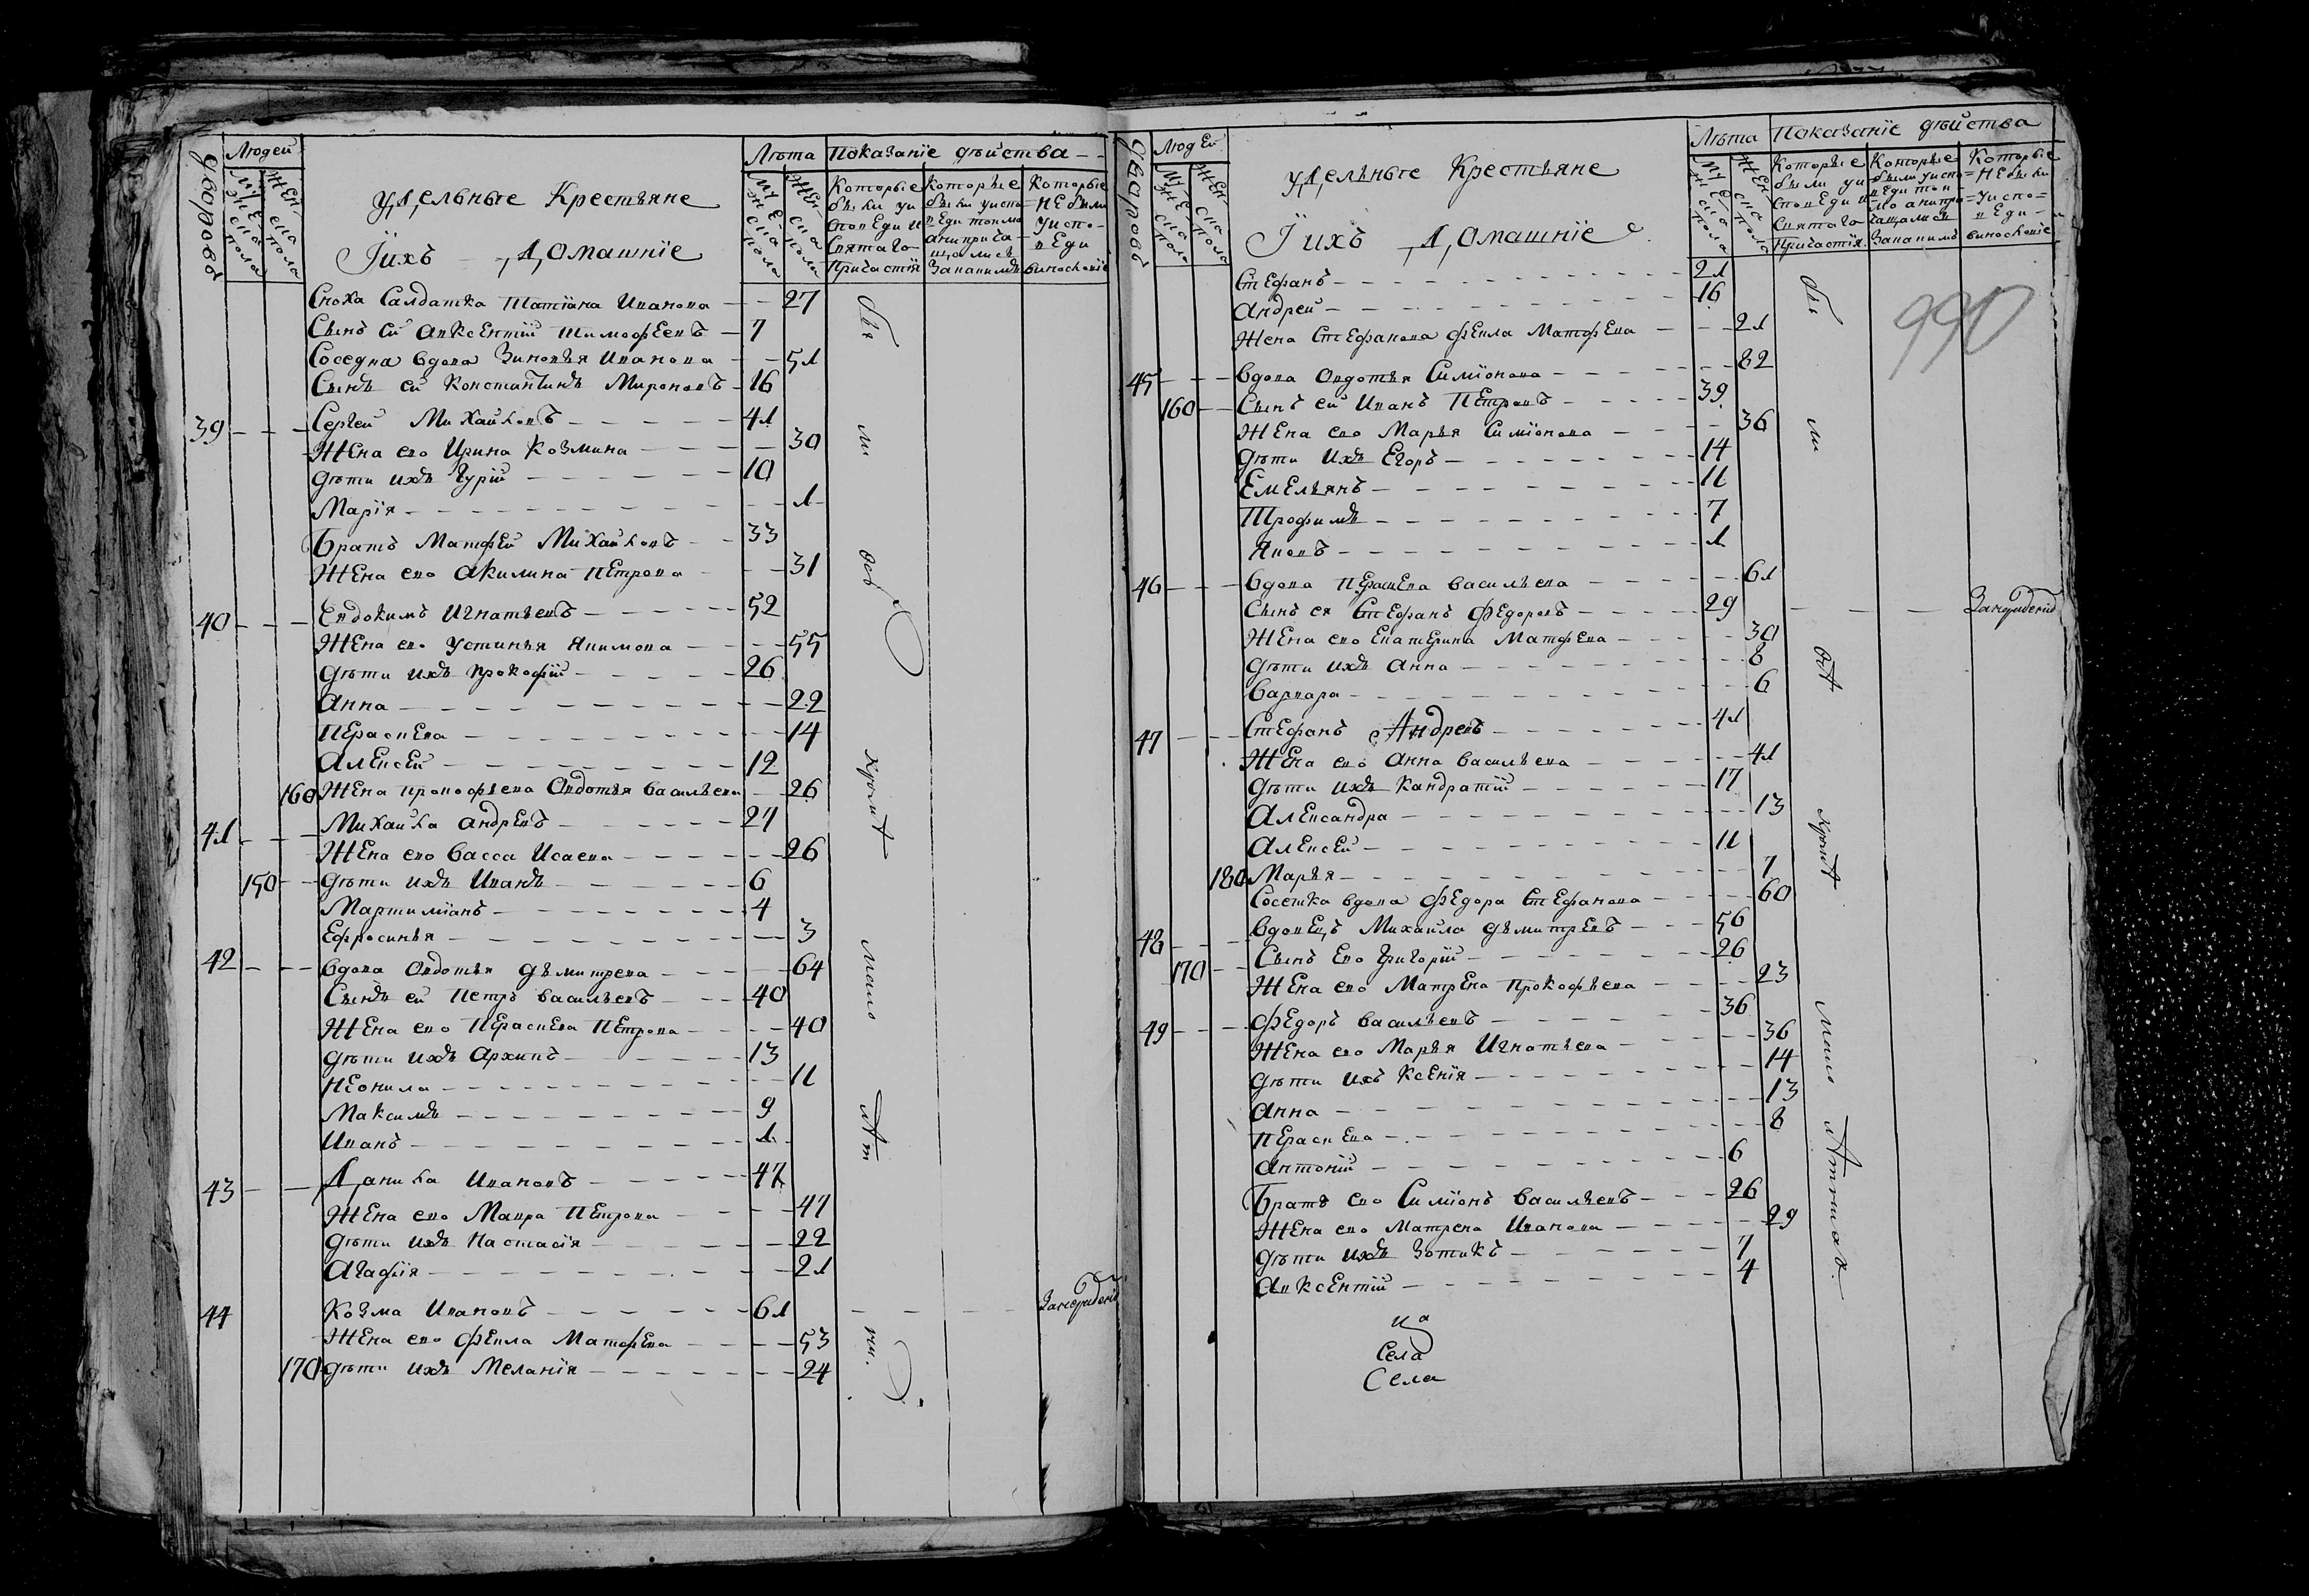 дворовъ Людей Лѣта Показанїе дѣйства
Мужеска пола Женска пола Мужеска пола Женска пола
удѣльные Крестьяне
Которые были уисповеди и Святаго Причастїя
Которые были уисповеди токмо а не причащались
Которые небыли уисповеди
Їихъ Домашнїе
Сноха Салдатка Татїана Иванова 27
Сынъ ей Авксентїй Тимофеевъ 7
Соседка вдова Зиновья Иванова 51
Сынъ ей Константинъ Мироновъ 16
39 Сергей Михайловъ 41
Жена ево Ирина Козмина 30
дѣти ихъ Гурїй 10
Марїя 1
Братъ Матфей Михайловъ 33
Жена ево Акилина Петрова 31
40 Евдокимъ Игнатьевъ 52
Жена ево Устинья Якимова 55
дѣти ихъ Прокофїй 26
Анна 22
Пераскева 14
Алексей 12
160 Жена прокофьева Овдотья васильева 26
41 Михайла андревъ 27
Жена ево васса Исаева 26
150 дѣти ихъ Иванъ 6
Мартимїанъ 4
Ефросинья 3
42 вдова Овдотья дьмитрева 64
Сынъ ей Петръ васильевъ 40
Жена ево Пераскева Петрова 40
дѣти ихъ Архипъ 13
Неонила 11
Максимъ 9
Иванъ 1
43 Данила Ивановъ 47
Жена ево Мавра Петрова 47
дѣти ихъ Настасїя 22
Агафїя 21
44 Козма Ивановъ 61
Жена ево Фекла Матфева 53
170 дѣти ихъ Меланїя 24
бы ли всѣ Кромѣ мало лѣт ни.
дворовъ Людей Лѣта Показанїе дѣйства
Мужеска пола Женска пола Мужеска пола Женска пола
удѣльные Крестьяне
Которые были уисповеди и Святаго Причастїя.
Которые были уисповеди токмо а не причащались
Которые Небыли уисповеди
Їихъ Домашнїе
990
Стефанъ 21
Андрей 16
Жена Стефанова фекла Матфева 21
45 вдова Овдотья Симїонова 82
160 Сынъ ей Иванъ Петровъ 39
Жена ево Марья Симїонова 36
дѣти ихъ Егоръ 14
Емельянъ 11
Трофимъ 7
Яковъ 1
46 вдова Пераскева васильева 61
Сынъ ея Стефанъ Федоровъ 29
Жена ево Екатерина Матфева 30
дѣти ихъ анна 8
варвара 6
47 Стефанъ Андревъ 41
Жена ево Анна васильева 41
дѣти ихъ Кандратїй 17
Александра 13
Алексей 11
180 Марья 7
Сосетка вдова Федора Стефанова 60
48 вдовецъ Михайла дьмитревъ 56
170 Сынъ ево Григорїй 26
Жена ево Матрена Прокофьева 23
49 Федоръ васильевъ 36
Жена ево Марья Игнатьева 36
дѣти ихъ Ксенїя 14
Анна 13
Пераскева 8
Антонїй 6
Братъ ево Симїонъ васильевъ 26
Жена ево Матрена Иванова 29
дѣти ихъ Зотикъ 7
Авксентїй 4
бы ли всѣ Кромѣ мало
Села
Села